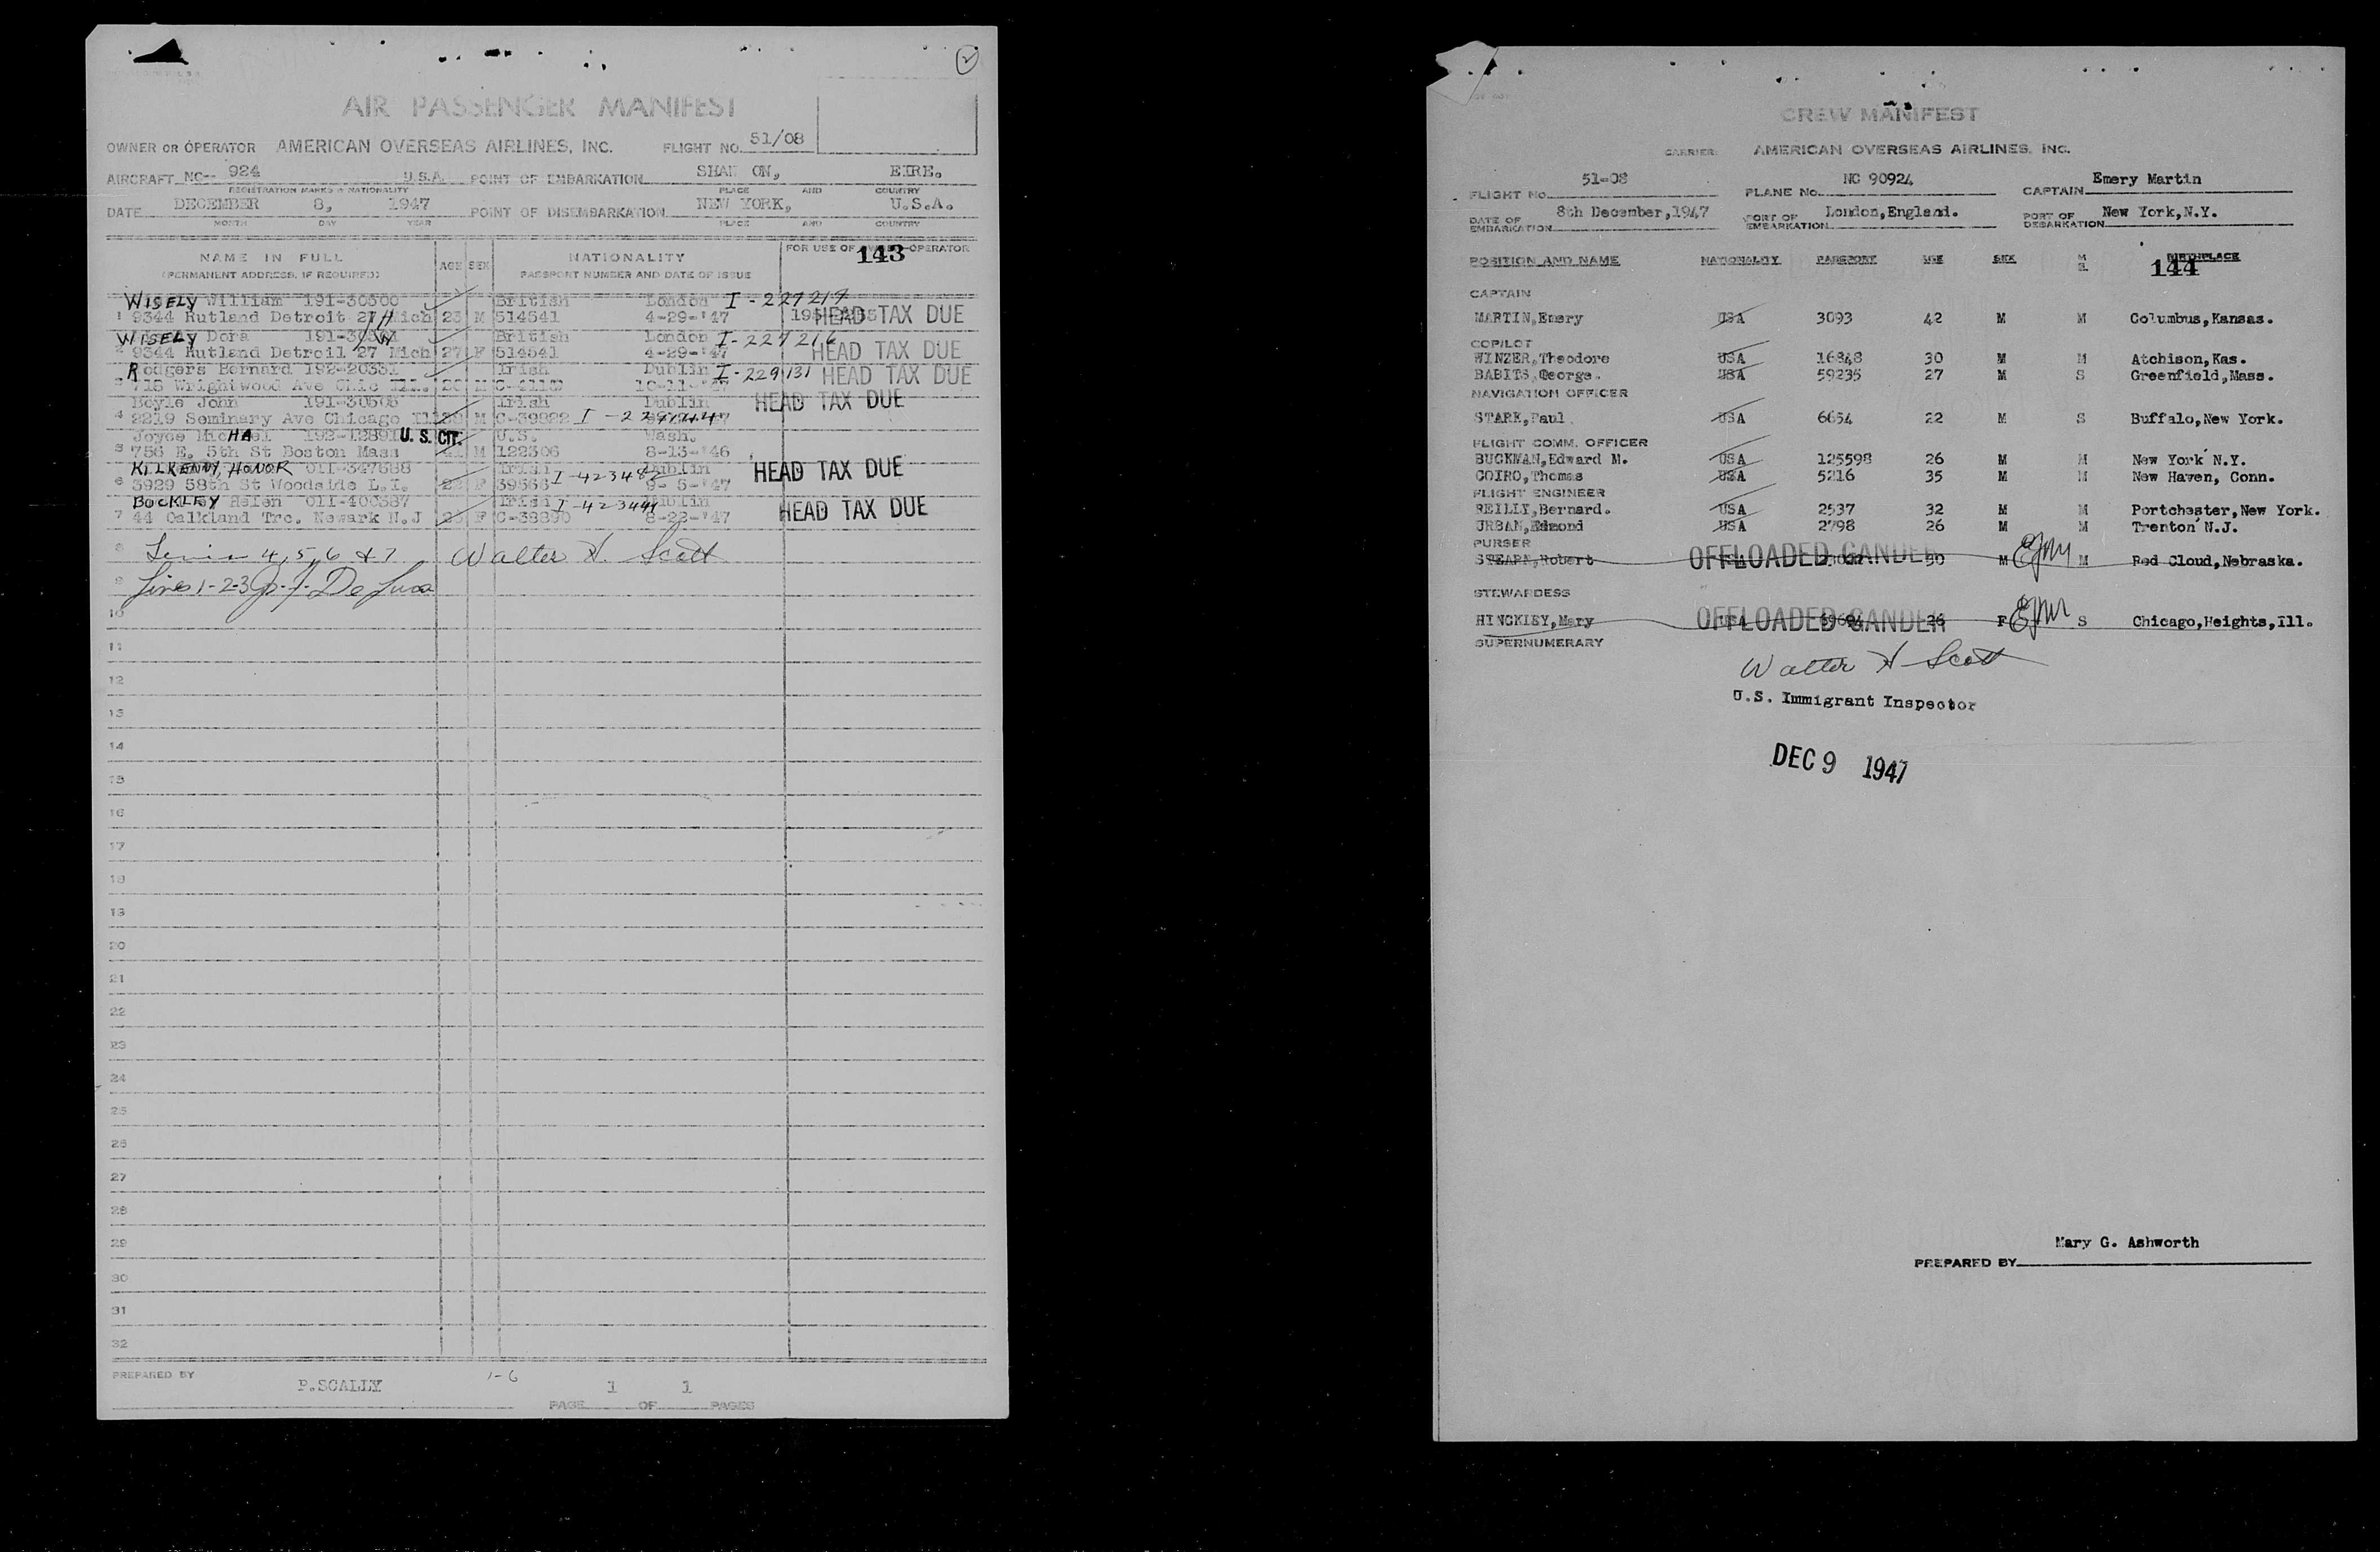 AIR PASSENGER MANIFEST
OWNER OR OPERATOR AMERICAN OVERSEAS AIRLINES, INC. FLIGHT NO. 51/08
AIRCRAFT NC-- 924 U.S.A. POINT OF EMBARKATION SHAN ON, EIRE.
REGISTRATION MARKS & NATIONALITY PLACE AND COUNTRY
DATE DECEMBER 8, 1947 POINT OF DISEMBARKATION NEW YORK, U.S.A.
MONTH DAY YEAR PLACE AND COUNTRY
NAME IN FULL
(PERMANENT ADDRESS, IF REQUIRED)
AGE SEX
NATIONALITY
PASSPORT NUMBER AND DATE OF ISSUE
FOR USE OF OPERATOR
143
WISELY William 191-30500 British London I-227217
1 9344 Rutland Detroit 27 Mich 23 M 514541 4-29-'47 HEAD TAX DUE
WISELY Dora British London I-227216
2 9344 Rutland Detroil 27 Mich 27 F 514541 4-29-'47 HEAD TAX DUE
Rodgers Bernard 192-20331 Irish Dublin I-229131 HEAD TAX DUE
3 718 Wrightwood Ave Chic Ill. M 10-11-'47
Boyle John Irish Dublin HEAD TAX DUE
4 2219 Seminary Ave Chicago M C-39822
Joyce MicHAel 192-12891 U.S. CIT. U.S. Wash.
5 756 E. 5th St Boston Mass M 122306 8-13-'46
KILKENNY, HONOR 011-347688 Irish Dublin HEAD TAX DUE
6 3929 58th St Woodside L.I. F 39566 I-423482 9-5-'47
BUCKLEY Helen 011-400387 Irish Dublin
7 44 Calkland Trc. Newark N.J F C-38890 I-423444 8-22-'47 HEAD TAX DUE
8 4, 5, 6 & 7 Walter H. Scott
9 Lines 1-2-3
10
11
12
13
14
15
16
17
18
19
20
21
22
23
24
25
26
27
28
29
30
31
32
PREPARED BY P.SCALLY 1-6
PAGE 1 OF 1 PAGES
CREW MANIFEST
CARRIER: AMERICAN OVERSEAS AIRLINES, INC.
FLIGHT No. 51-08 PLANE No. NC 90924 CAPTAIN Emery Martin
DATE OF EMBARKATION 8th December,1947 PORT OF EMBARKATION London,England. PORT OF DEBARKATION New York,N.Y.
POSITION AND NAME NATIONALITY PASSPORT AGE SEX M S BIRTHPLACE
144
CAPTAIN
MARTIN,Emery USA 3093 42 M M Columbus,Kansas.
COPILOT
WINZER,Theodore USA 16848 30 M M Atchison,Kas.
BABITS,George. USA 59235 27 M S Greenfield,Mass.
NAVIGATION OFFICER
STARK,Paul USA 6654 22 M S Buffalo,New York.
FLIGHT COMM. OFFICER
BUCKMAN,Edward M. USA 125598 26 M M New York N.Y.
COIRO,Thomas USA 5216 35 M M New Haven, Conn.
FLIGHT ENGINEER
REILLY,Bernard. USA 2537 32 M M Portchester,New York.
URBAN,Edmond USA 2798 26 M M Trenton N.J.
PURSER
STEARN,Robert OFFLOADED GANDER 30 M M Red Cloud,Nebraska.
STEWARDESS
HINCKLEY,Mary USA OFFLOADED GANDER 26 F S Chicago,Heights,Ill.
SUPERNUMERARY
Walter H Scott
U.S. Immigrant Inspector
DEC 9 1947
Mary G. Ashworth
PREPARED BY